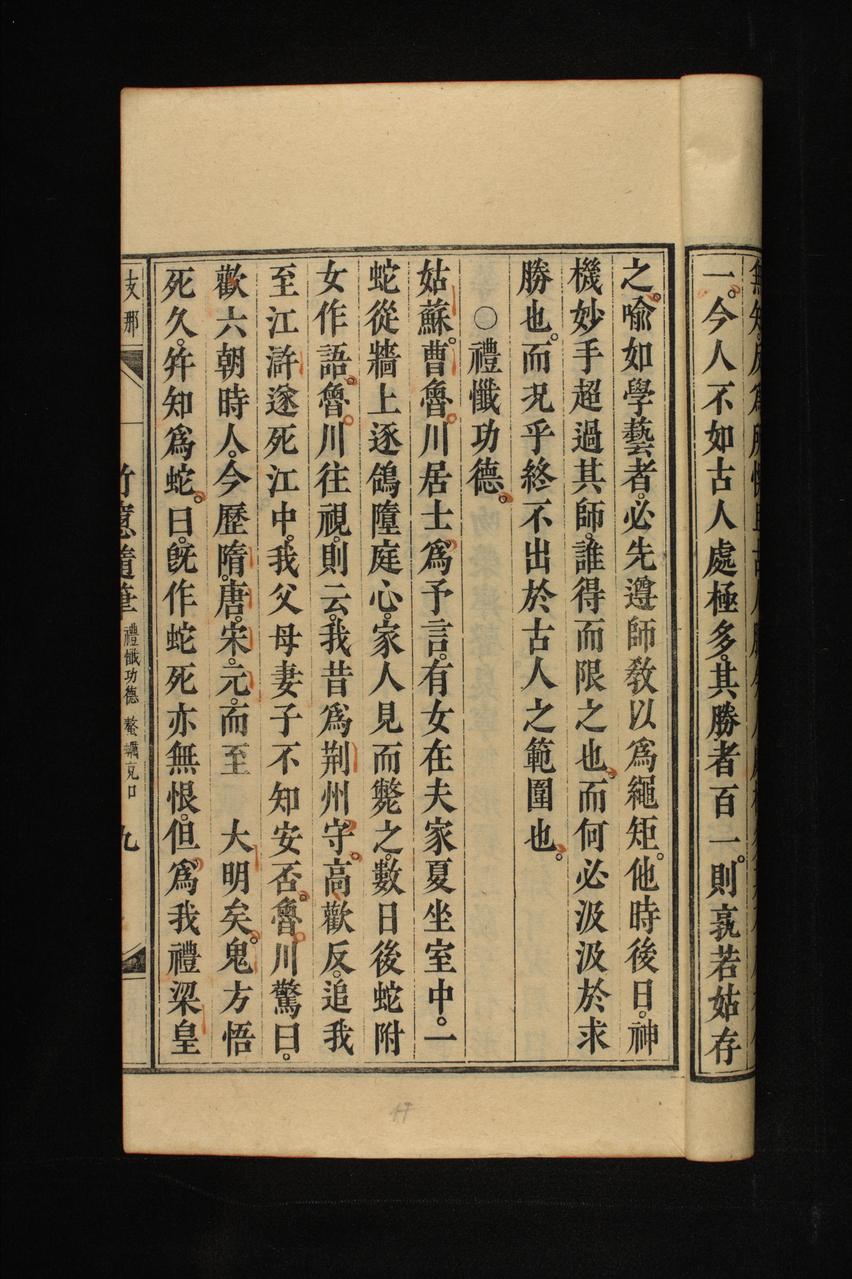 一。今人不如古人處極多。其勝者百一。則孰若姑存
之。喩如學藝者。必先遵師敎以爲繩矩。他時後日。神
機妙手超過其師。誰得而限之也。而何必汲汲於求
勝也。而况乎終不出於古人之範圍也。
○禮懺功德。
姑蘇。曹魯。川居士爲予言。有女在夫家夏坐室中。一
蛇從牆上逐鴿墮庭心。家人見而斃之。數日後蛇附
女作語。魯。川往視。則云。我昔爲荆州。守。高歡反。追我
至江滸遂死江中。我父母妻子不知安否。魯。川驚曰。
歡六朝時人。今歷隋。唐。宋。元。而至　大明矣。鬼方悟
死久。并知爲蛇。曰。旣作蛇死亦無恨。但爲我禮梁皇
支那
竹窻隨筆
禮懺功德
九